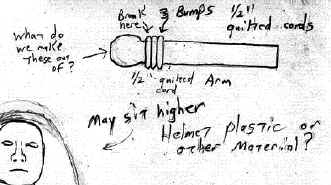 Break
here
3 Bumps
1/2"
quilted cords
What do
we make
these out
of?
1/2" quilted Arm
cord
May sit higher
Helmet plastic or
other material?